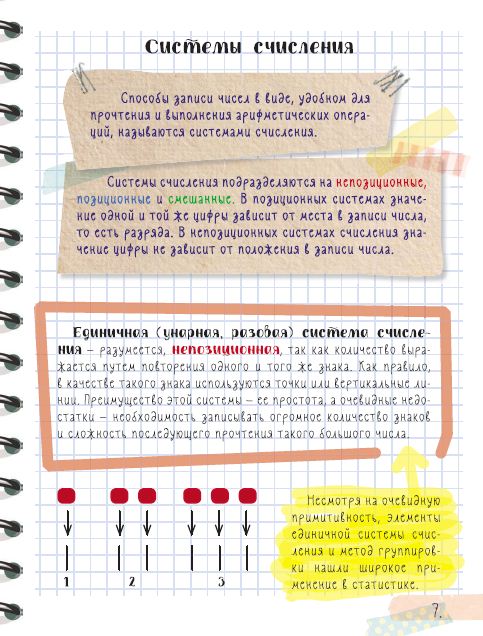 Системы счисления
Способы записи чисел в виде, удобном для
прочтения и выполнения арифметических опера-
ций, называются системами счисления.
Системы счисления подразделяются на непозиционные,
позиционные и смешанные. В позиционных системах значе-
ние одной и той же цифры зависит от места в записи числа,
то есть разряда. В непозиционных системах счисления зна-
чение цифры не зависит от положения в записи числа.
Единичная (унарная, разовая) система счисле-
ния – разумеется, непозиционная, так как количество выра-
жается путем повторения одного и того же знака. Как правило,
в качестве такого знака используются точки или вертикальные ли-
нии. Преимущество этой системы – ее простота, а очевидные недо-
статки – необходимость записывать огромное количество знаков
и сложность последующего прочтения такого большого числа.
1 2 3
Несмотря на очевидную
примитивность, элементы
единичной системы счис-
ления и метод группиров-
ки нашли широкое при-
менение в статистике.
7.